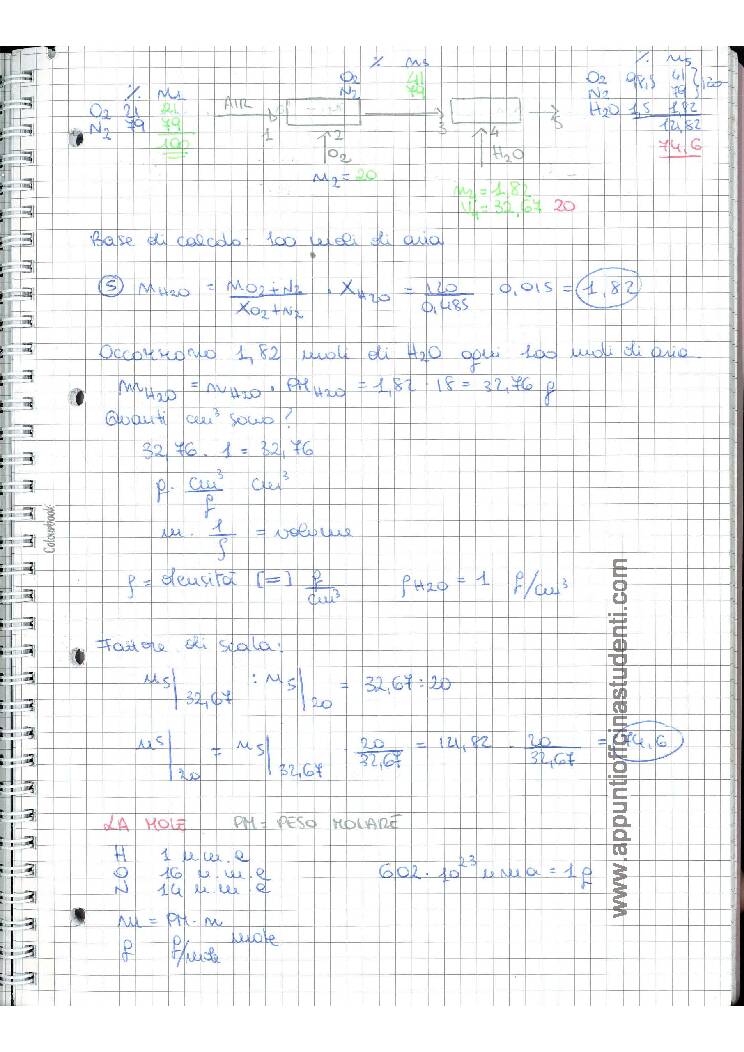 % n3
O2 41
N2 79
% n5
O2 98,5 41
N2 79 } 120
H2O 1,5 1,82
121,82
74,6
% n1
O2 21 21
N2 79 79
100
AIR
1 2 3 4 5
O2
H2O
n2 = 20
n4 = 1,82
V4 = 32,67 20
Base di calcolo: 100 moli di aria
5 nH2O = nO2+N2 / XO2+N2 · XH2O = 120 / 0,985 · 0,015 = 1,82
Occorrono 1,82 moli di H2O ogni 100 moli di aria.
mH2O = nH2O · PMH2O = 1,82 · 18 = 32,76 g
Quanti cm³ sono?
32,76 · 1 = 32,76
g · cm³/g cm³
m · 1/ρ = volume
ρ = densità [=] g/cm³ ρH2O = 1 g/cm³
Fattore di scala:
n5|32,67 : n5|20 = 32,67 : 20
n5|20 = n5|32,67 20/32,67 = 121,82 · 20/32,67 = 74,6
LA MOLE PM = PESO MOLARE
H 1 u.m.a
O 16 u.m.a 602 · 10²³ uma = 1g
N 14 u.m.a
m = PM · n
g g/mole mole
Colourbook
www.appuntiofficinastudenti.com